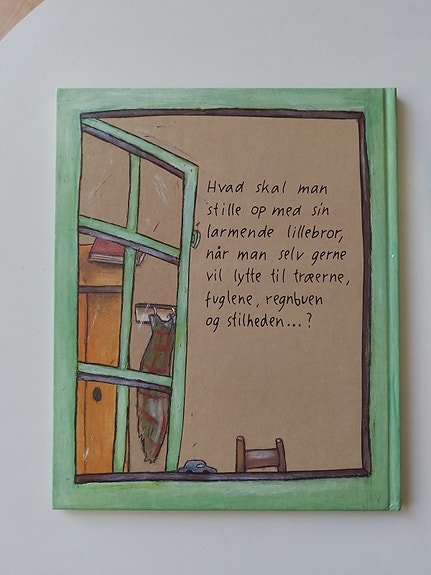 Hvad skal man
stille op med sin
larmende lillebror,
når man selv gerne
vil lytte til træerne,
fuglene, regnbuen
og stilheden...?